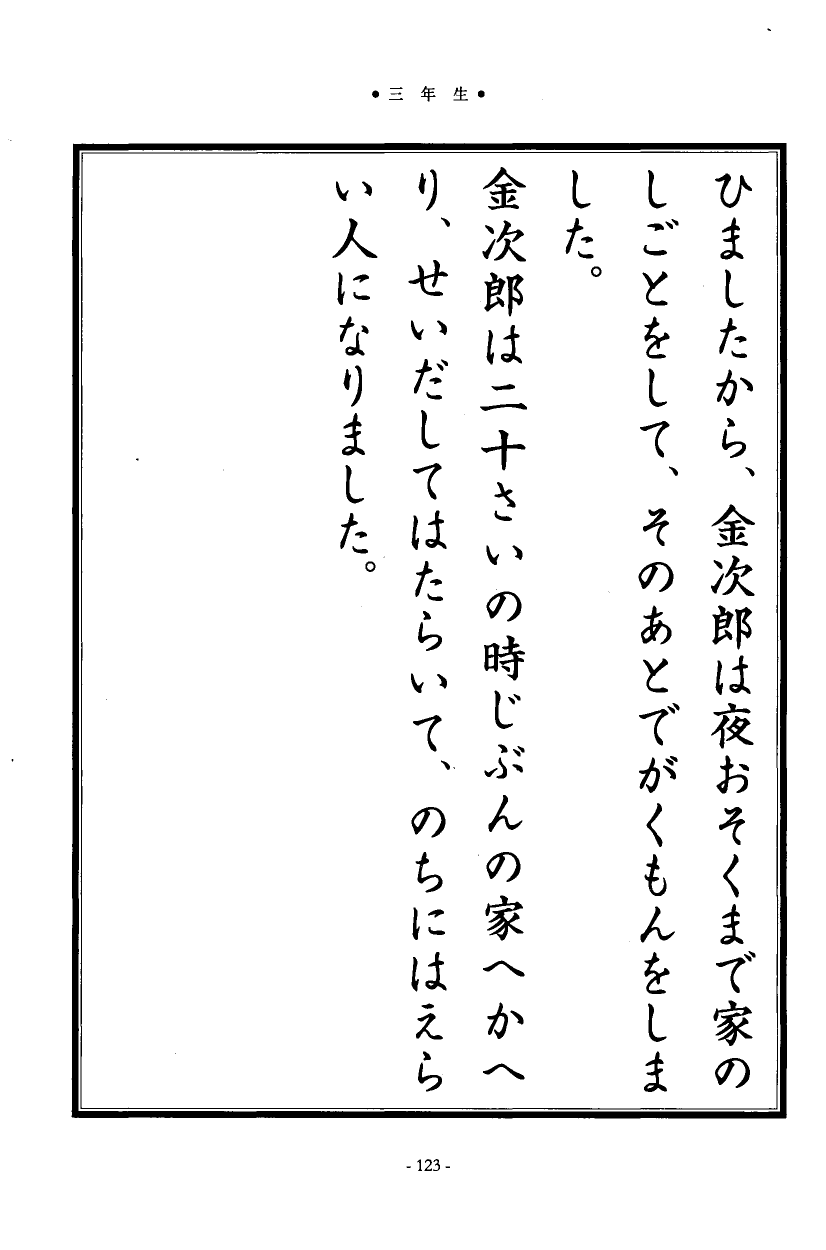 ●三年生●
ひましたから、金次郎は夜おそくまで家の
しごとをして、そのあとでがくもんをしま
した。
金次郎は二十さいの時じぶんの家へかへ
り、せいだしてはたらいて、のちにはえら
い人になりました。
- 123 -